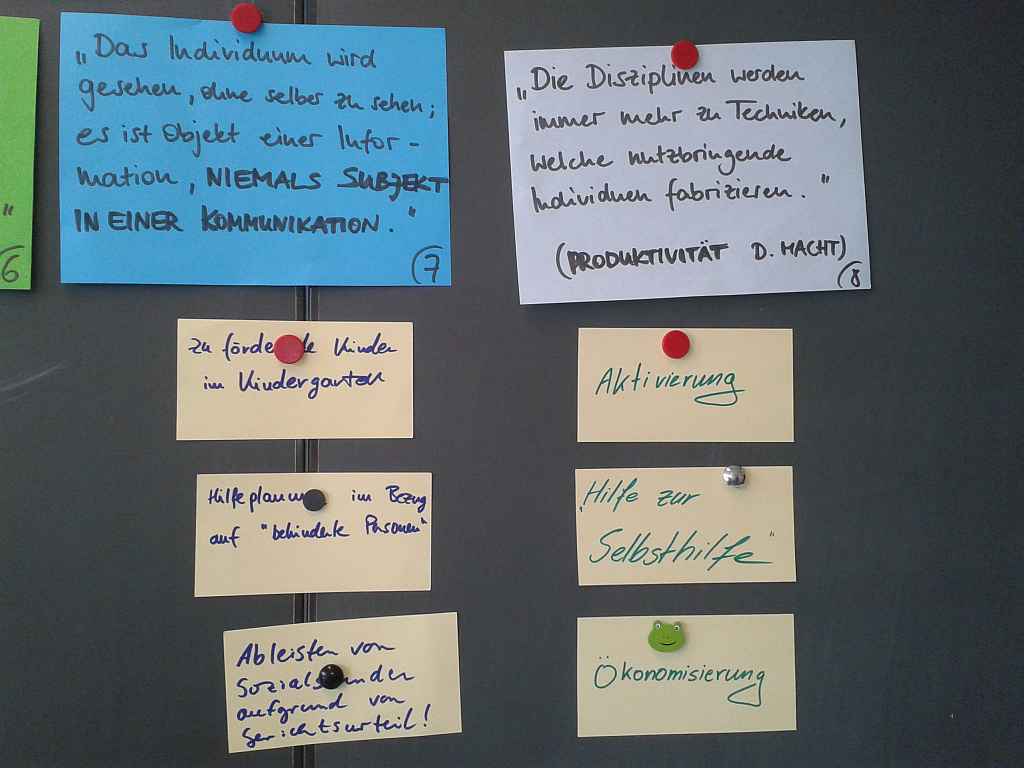 "
6
„Das Individuum wird
gesehen, ohne selber zu sehen;
es ist Objekt einer Infor-
mation, NIEMALS SUBJEKT
IN EINER KOMMUNIKATION."
7
zu fördernde Kinder
im Kindergarten
Hilfeplanung im Bezug
auf "behinderte Personen"
Ableisten von
Sozialstunden
aufgrund von
Gerichtsurteil!
„Die Disziplinen werden
immer mehr zu Techniken,
welche nutzbringende
Individuen fabrizieren."
(PRODUKTIVITÄT D. MACHT)
8
Aktivierung
„Hilfe zur
Selbsthilfe"
Ökonomisierung